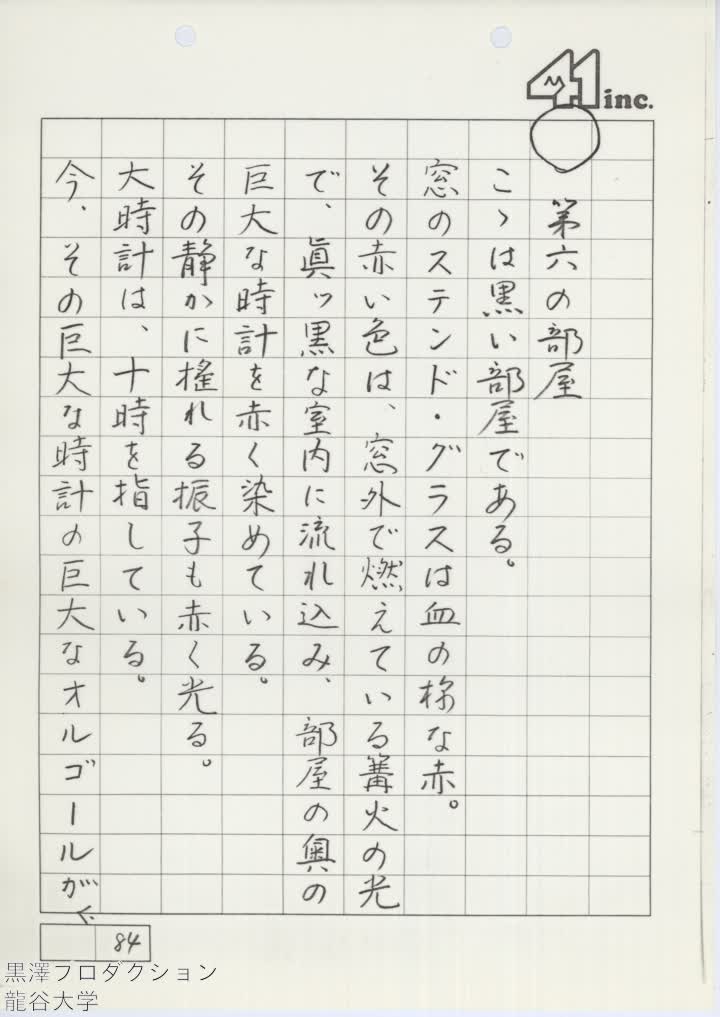 41 inc.
第六の部屋
こゝは黒い部屋である。
窓のステンド・グラスは血の様な赤。
その赤い色は、窓外で燃えている篝火の光
で、眞ッ黒な室内に流れ込み、部屋の奥の
巨大な時計を赤く染めている。
その静かに搖れる振子も赤く光る。
大時計は、十時を指している。
今、その巨大な時計の巨大なオルゴールが
84
黒澤プロダクション
龍谷大学